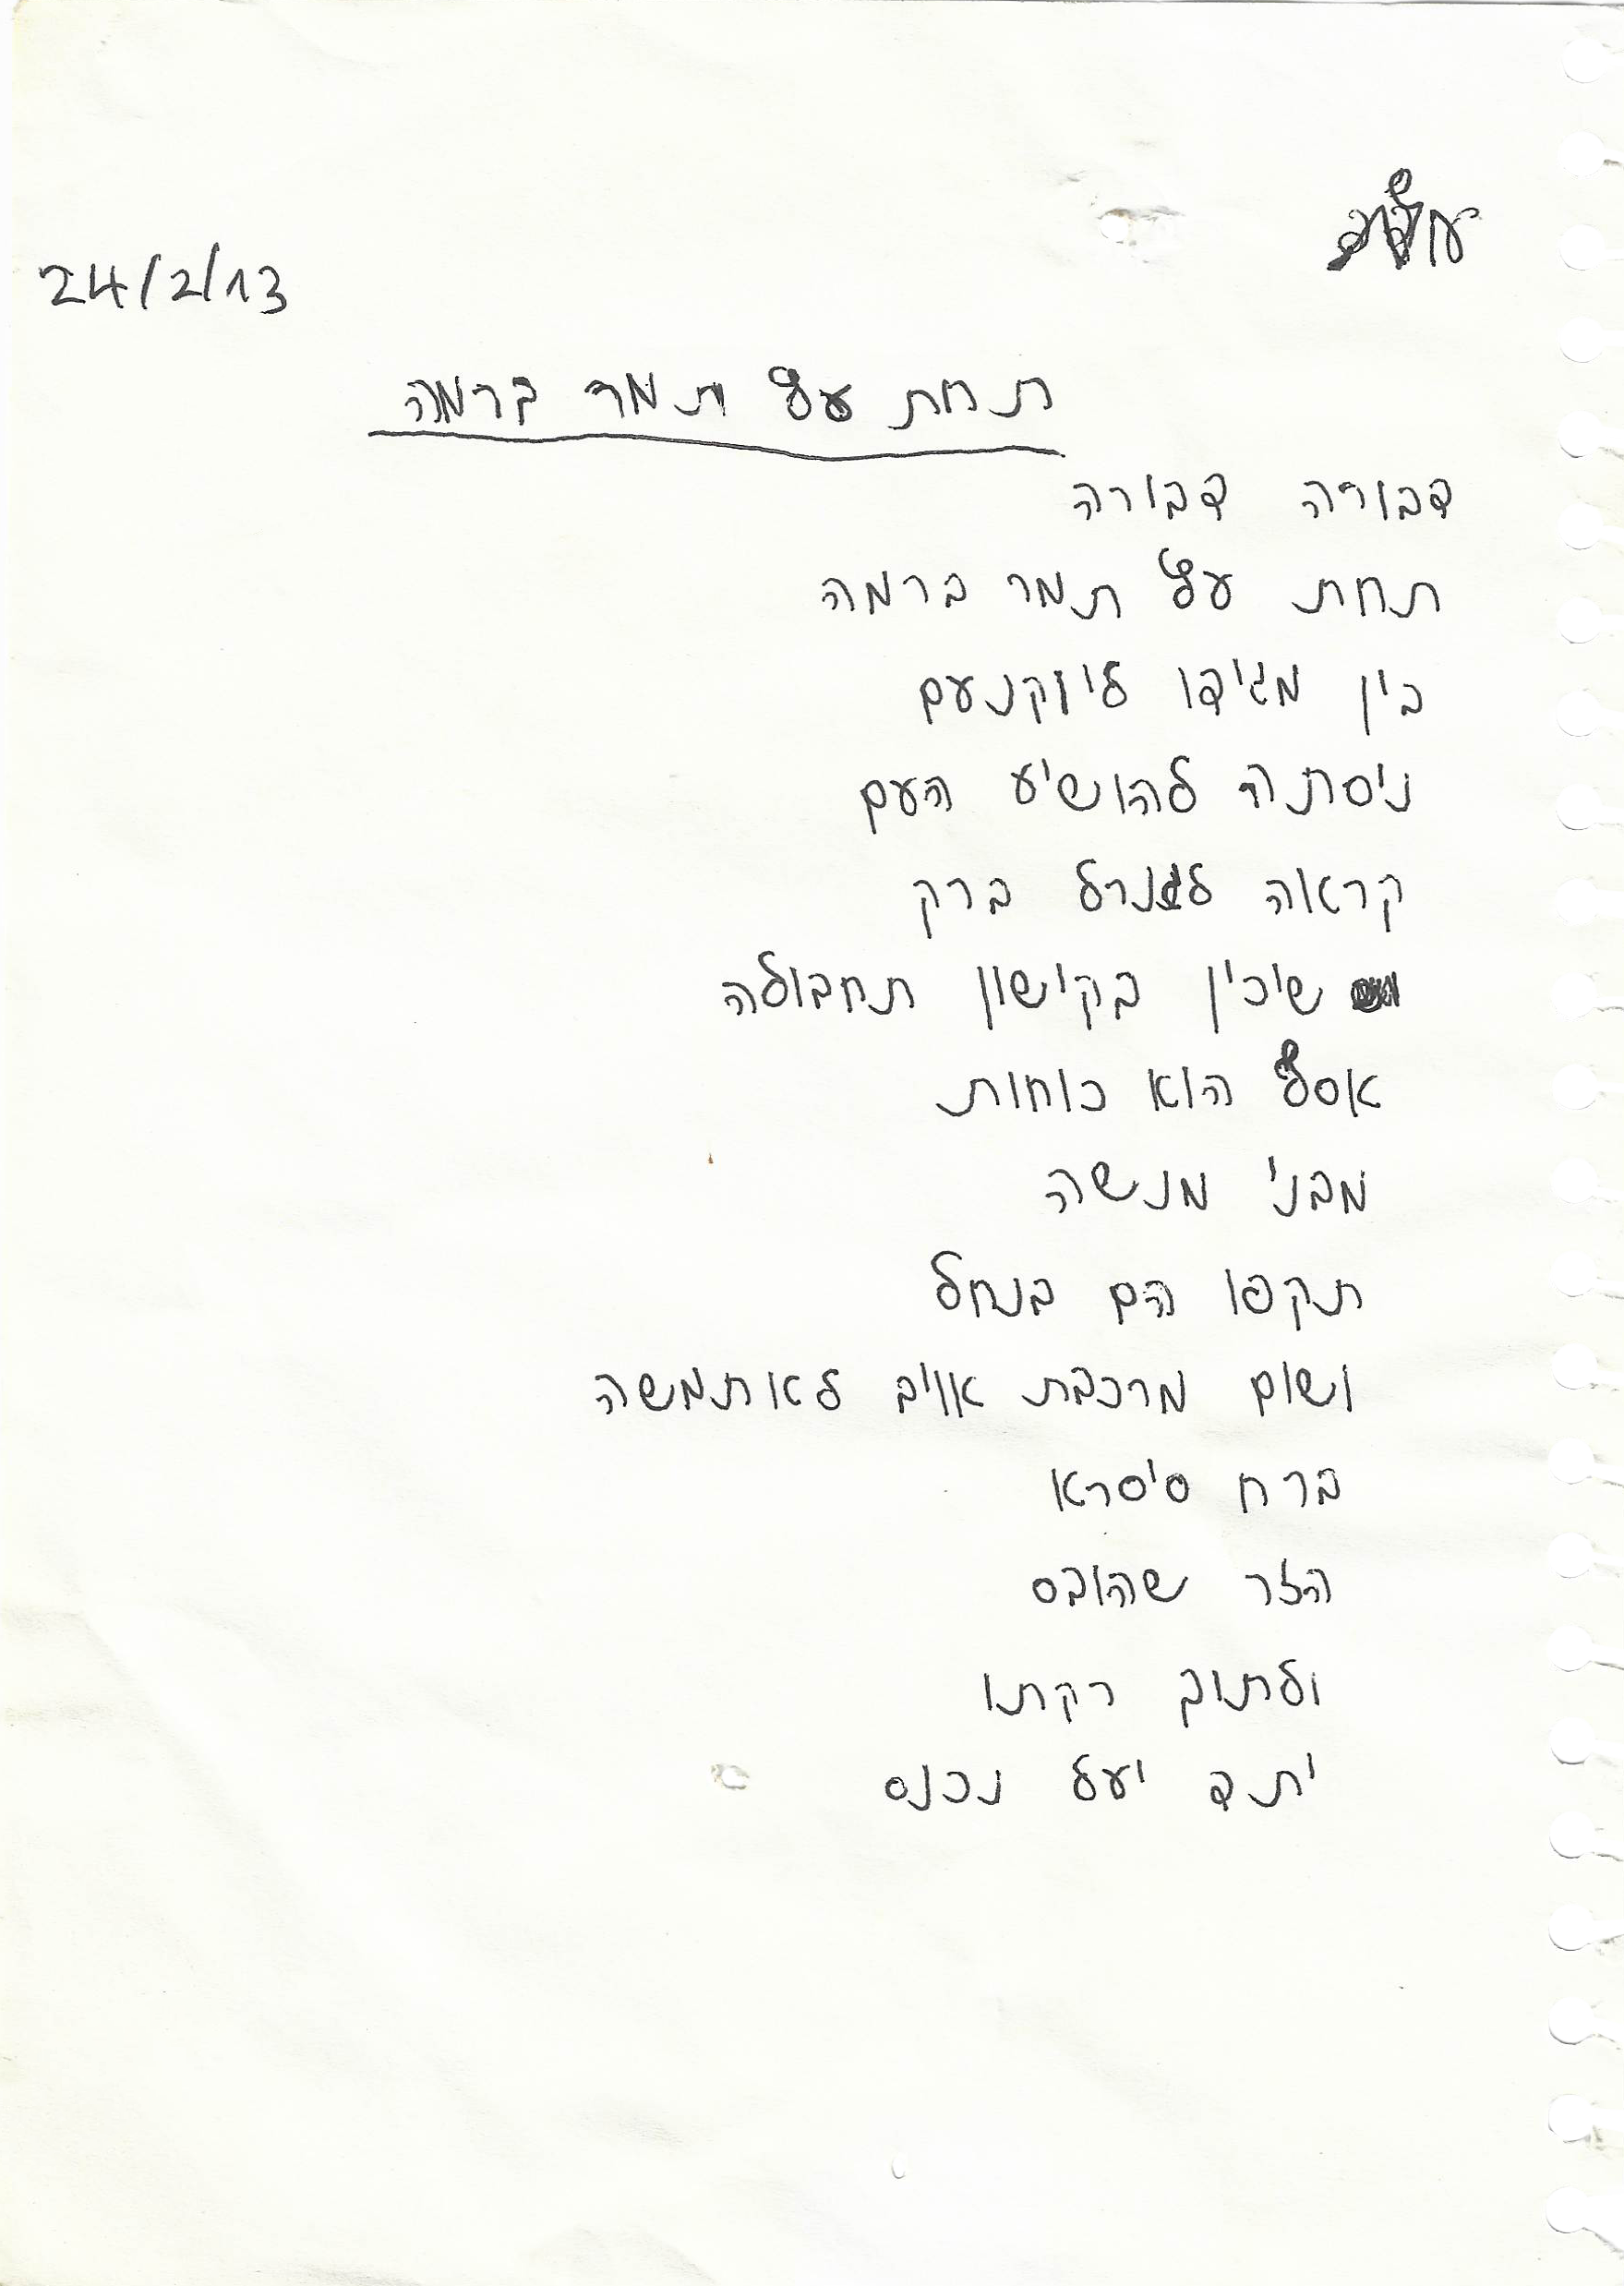 24/2/13
תחת עץ תמר ברמה
דבורה דבורה
תחת עץ תמר ברמה
בין מגידו ליוקנעם
ניסתה להושיע העם
קראה לגנרל ברק
שיכין בקישון תחבולה
אסף הוא כוחות
מבני מנשה
תקפו הם בנחל
ושום מרכבת אויב לא תמשה
ברח סיסרא
הזר שהובס
ולתוך רקתו
יתד יעל נכנס